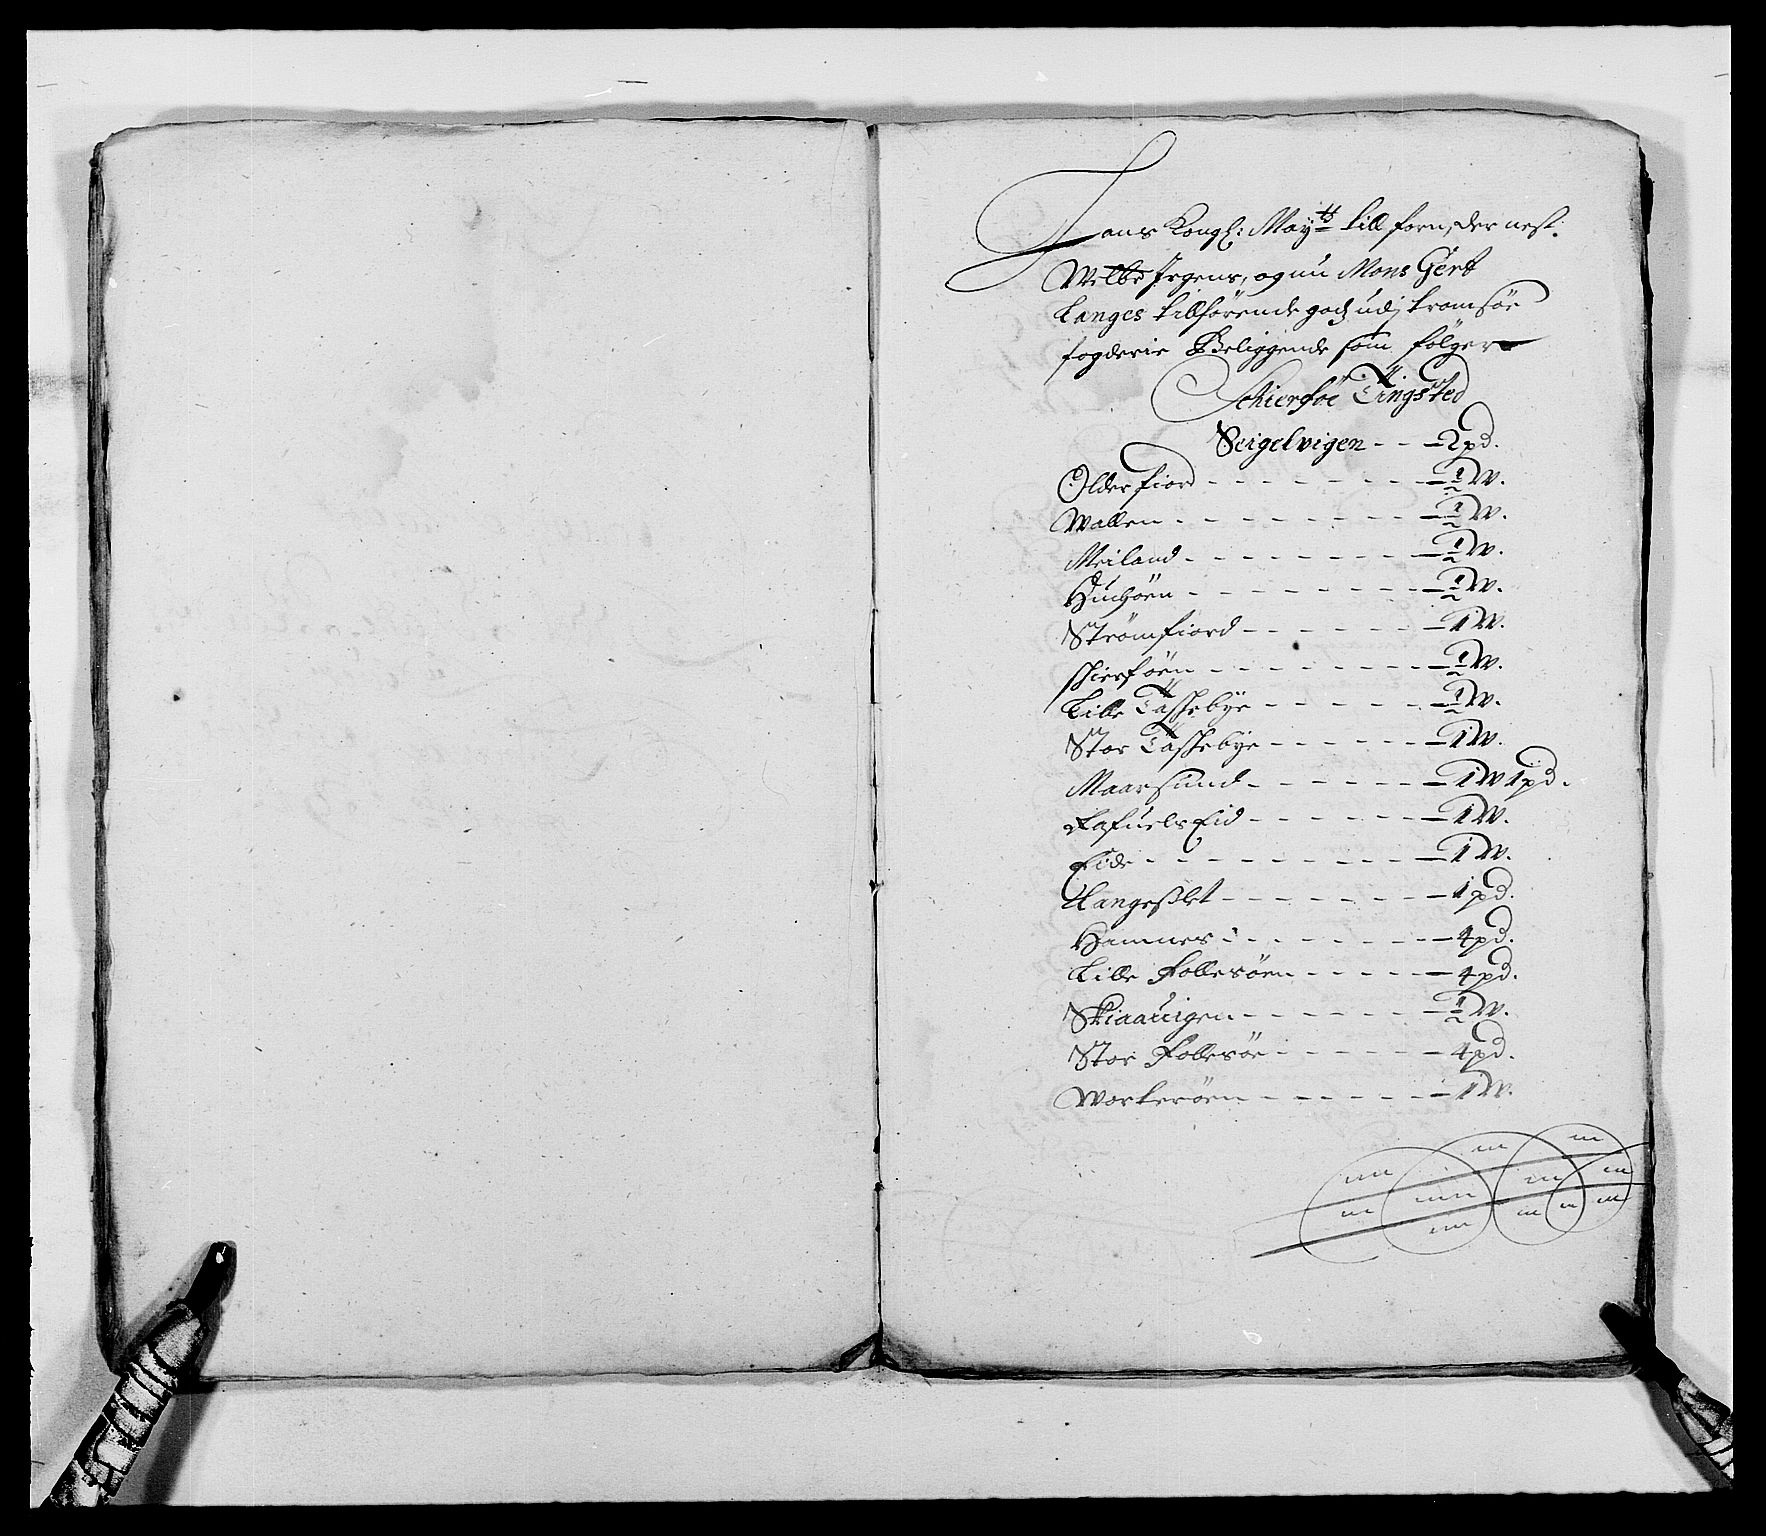 Hans Kongl: Mayts till forn, der nest.
Welbe Irgens, og nu Mons Gert
Langes tillhörende godz udj tromsöe
fogderie Beliggende som fölger
Schierföe Tingsted
Seigelvigen - - - 2 pd.
Olderfiord - - - - - - - ½ W.
Wallen - - - - - - - - ½ W.
Meiland - - - - - - - ½ W.
- - - - - - - - ½ W.
Strömfiord - - - - - - 1 W.
skierföen - - - - - - - - ½ W.
Lille Taskebye - - - - - - ½ W.
Stor Taskebye - - - - - - 1 W.
Maarsund - - - - - - 1 W 1 pd.
Rafuels Eid - - - - - - 1 W.
Eide - - - - - - - - - - 1 W.
Langeslet - - - - - - - 1 pd.
Hamnes - - - - - - - 4 pd.
Lille Follesöen - - - - - 4 pd.
Skiaauigen - - - - - - ½ W.
Stor Follesöe - - - - - 4 pd.
Worteröen - - - - - - 1 W.